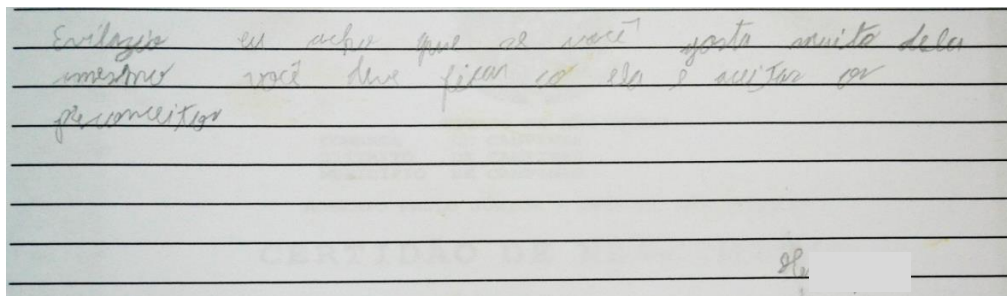 Evilazio eu acho que se você gosta muito dela
mesmo você deve ficar co ela e aceitar os
preconceitos
CERTIDÃO DE